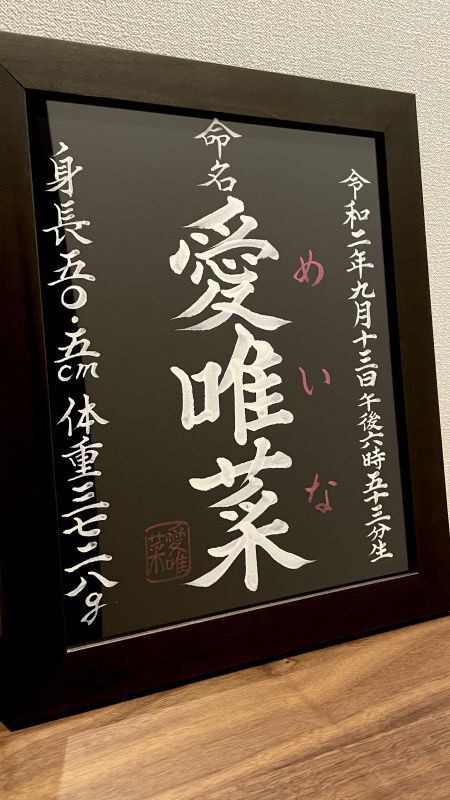 令和二年九月十三日 午後六時五十三分生
命名
愛唯菜
めいな
身長五〇・五cm 体重三七二八g
愛唯菜